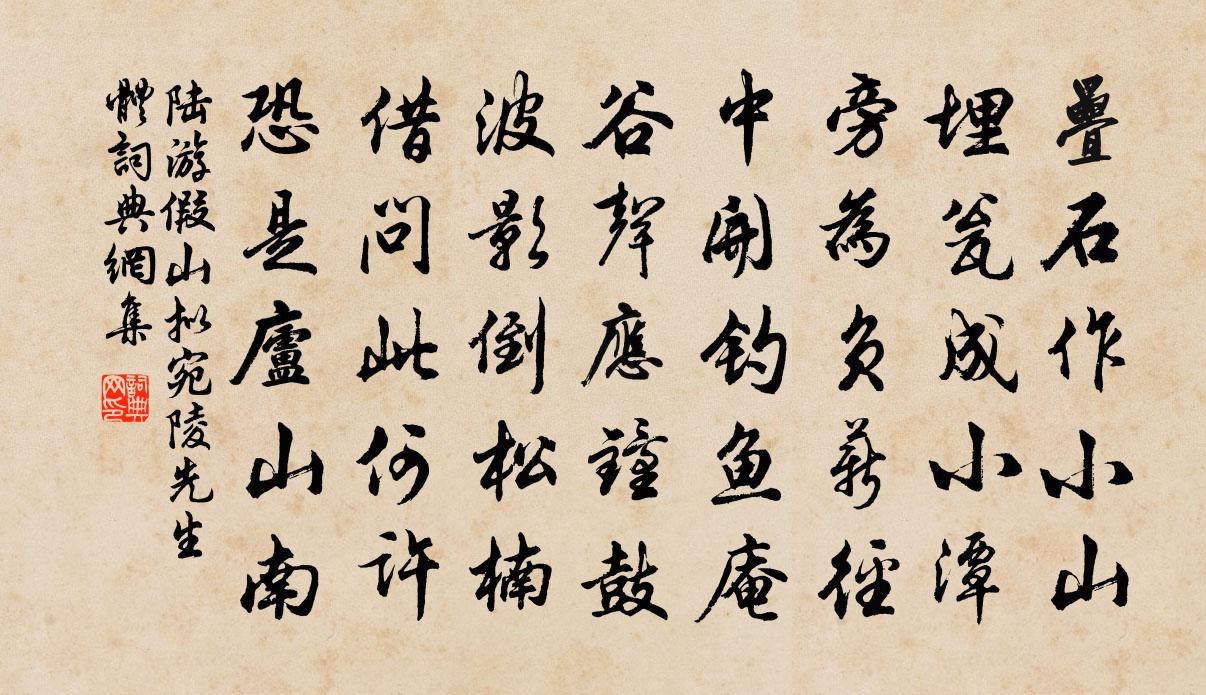 疊石作小山
埋瓮成小潭
旁為負薪徑
中開釣魚庵
谷聲應鐘鼓
波影倒松楠
借問此何許
恐是廬山南
陆游假山拟宛陵先生
體詞典網集
詞典网印